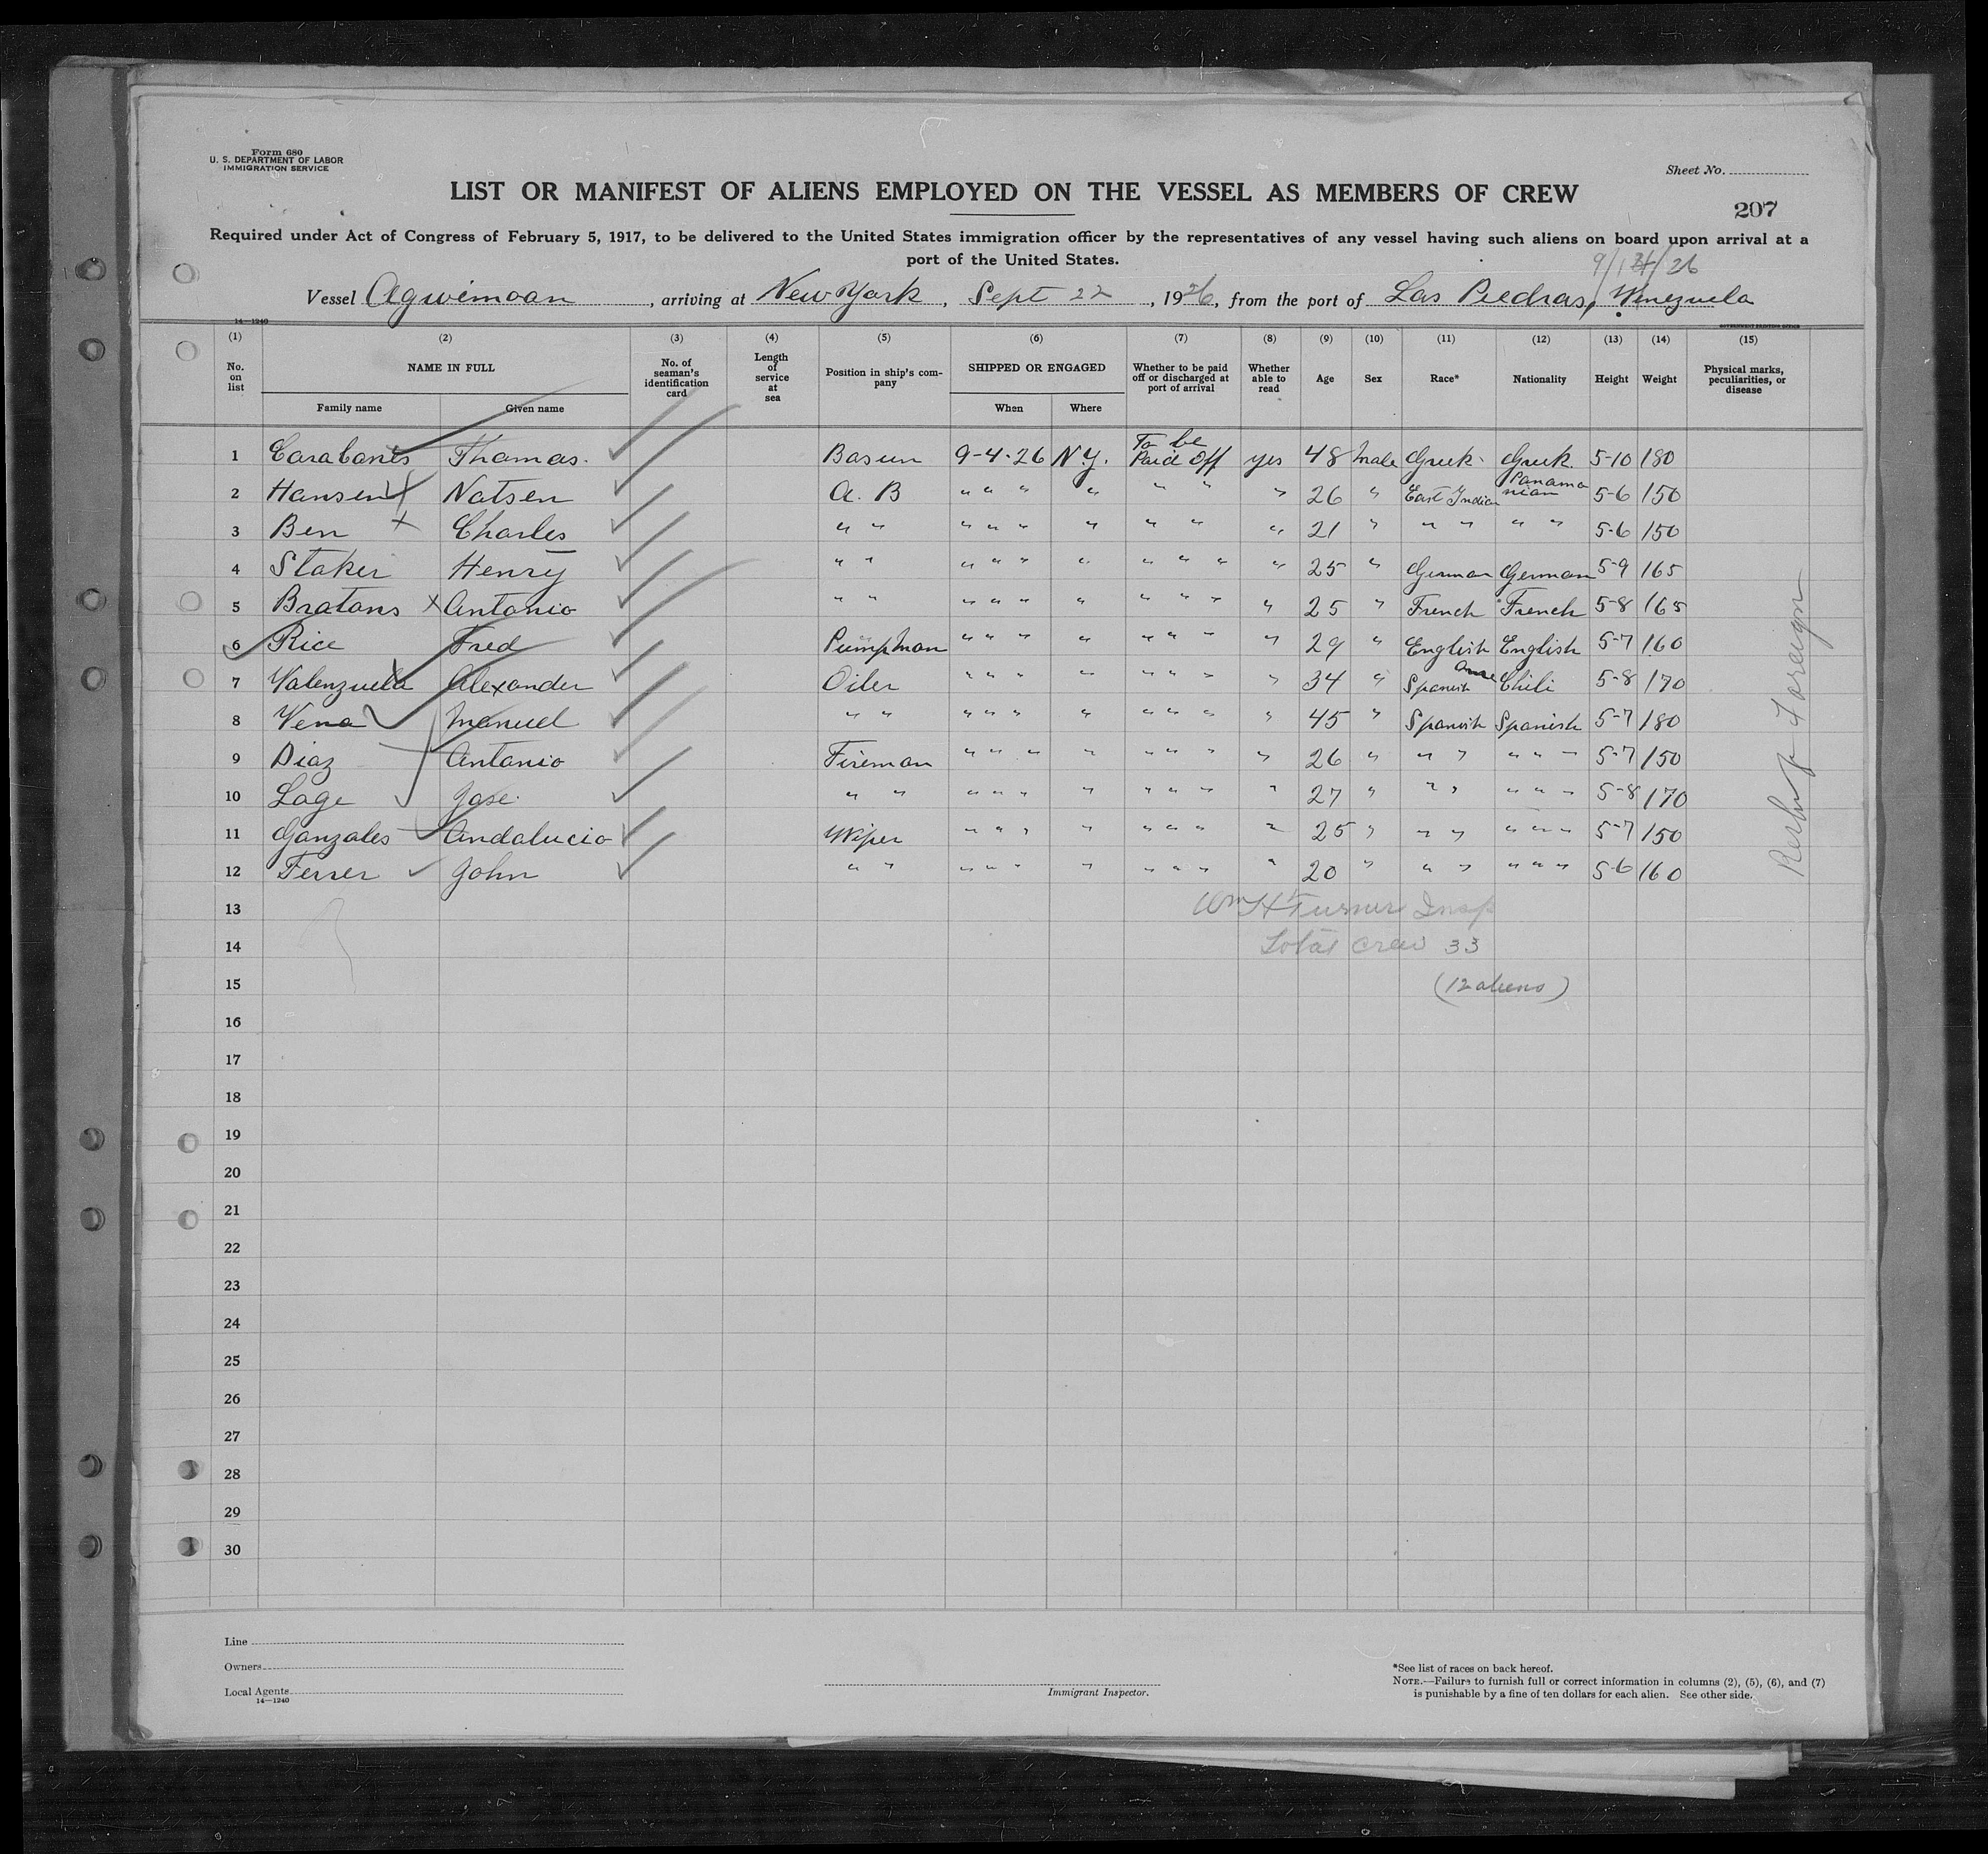 Form 680
U. S. DEPARTMENT OF LABOR
IMMIGRATION SERVICE
Sheet No.
LIST OR MANIFEST OF ALIENS EMPLOYED ON THE VESSEL AS MEMBERS OF CREW
207
Required under Act of Congress of February 5, 1917, to be delivered to the United States immigration officer by the representatives of any vessel having such aliens on board upon arrival at a
port of the United States.
Vessel Agwimoan, arriving at New York, Sept 22, 1926, from the port of Las Piedras, Venezuela
14—1240
GOVERNMENT PRINTING OFFICE
(1) (2) (3) (4) (5) (6) (7) (8) (9) (10) (11) (12) (13) (14) (15)
No. on list NAME IN FULL No. of seaman's identification card Length of service at sea Position in ship's company SHIPPED OR ENGAGED Whether to be paid off or discharged at port of arrival Whether able to read Age Sex Race* Nationality Height Weight Physical marks, peculiarities, or disease
Family name Given name When Where
1 Carabanes Thomas. Bosun 9-4-26 N.Y. To be Paid Off yes 48 Male Greek Greek 5-10 180
2 Hansen Natsen A. B " " " " " " " 26 " East Indian Panamanian 5-6 150
3 Ben Charles " " " " " " " " " 21 " " " " " 5-6 150
4 Staker Henry " " " " " " " " " " 25 " German German 5-9 165
5 Bratans Antonio " " " " " " " " " " 25 " French French 5-8 165
6 Rice Fred Pumpman " " " " " " " " 29 " English English 5-7 160
7 Valenzuela Alexander Oiler " " " " " " " " 34 " Spanish Ame Chili 5-8 170
8 Vena Manuel " " " " " " " " " " 45 " Spanish Spanish 5-7 180
9 Diaz Antonio Fireman " " " " " " " " 26 " " " " " " 5-7 150
10 Lage Jose " " " " " " " " " " 27 " " " " " " 5-8 170
11 Ganzales Andalucio Wiper " " " " " " " " 25 " " " " " " 5-7 150
12 Ferrer John " " " " " " " " " " 20 " " " " " " 5-6 160
13 Wm H Turner Insp
14 Total Crew 33
15 (12 aliens)
16
17
18
19
20
21
22
23
24
25
26
27
28
29
30
Foreign
Line
Owners
Local Agents
14—1240
Immigrant Inspector.
*See list of races on back hereof.
NOTE.—Failure to furnish full or correct information in columns (2), (5), (6), and (7)
is punishable by a fine of ten dollars for each alien. See other side.